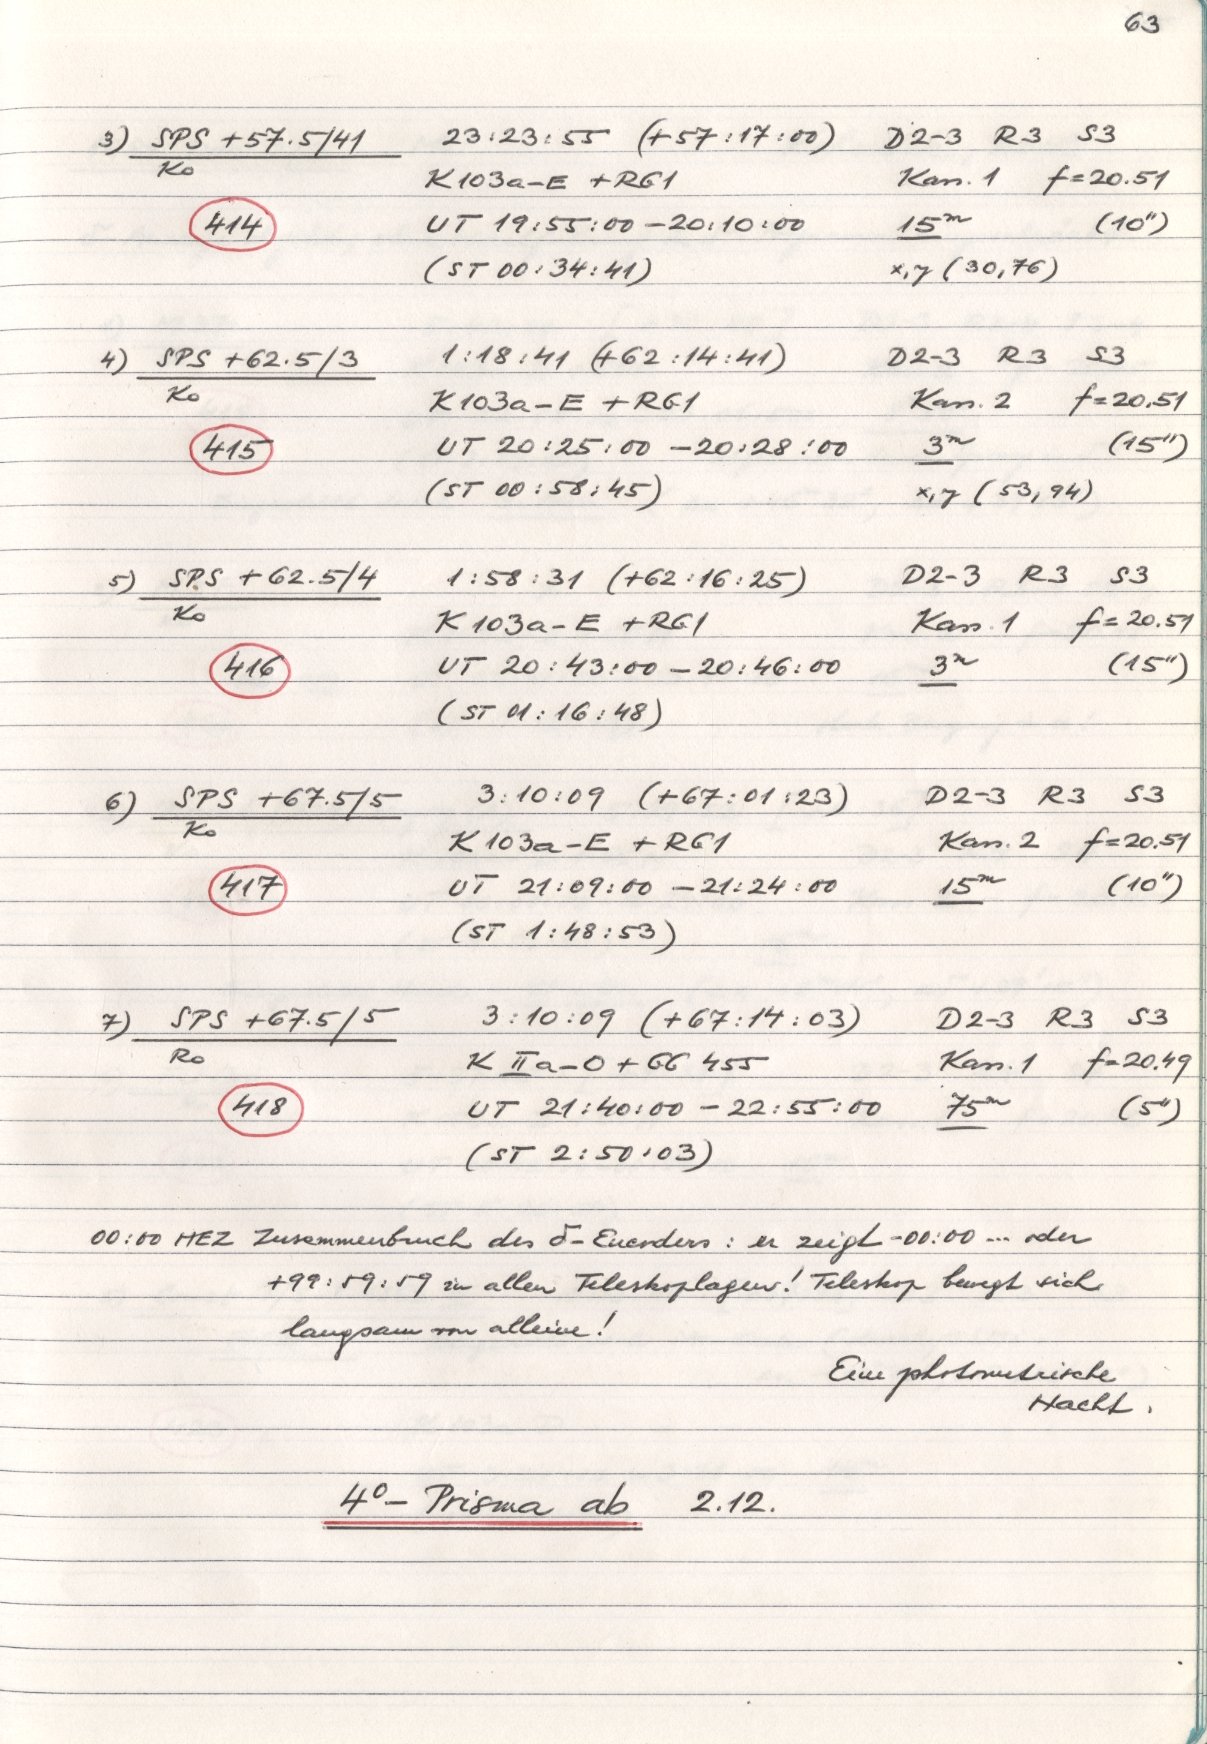 63
3) SPS +57.5/41 23:23:55 (+57:17:00) D2-3 R3 S3
Ko K103a-E +RG1 Kass.1 f=20.51
414 UT 19:55:00 -20:10:00 15m (10")
(ST 00:34:41) x,y (30,76)
4) SPS +62.5/3 1:18:41 (+62:14:41) D2-3 R3 S3
Ko K103a-E +RG1 Kass.2 f=20.51
415 UT 20:25:00 -20:28:00 3m (15")
(ST 00:58:45) x,y (53,94)
5) SPS +62.5/4 1:58:31 (+62:16:25) D2-3 R3 S3
Ko K103a-E +RG1 Kass.1 f=20.51
416 UT 20:43:00 -20:46:00 3m (15")
(ST 01:16:48)
6) SPS +67.5/5 3:10:09 (+67:01:23) D2-3 R3 S3
Ko K103a-E +RG1 Kass.2 f=20.51
417 UT 21:09:00 -21:24:00 15m (10")
(ST 1:48:53)
7) SPS +67.5/5 3:10:09 (+67:14:03) D2-3 R3 S3
Ro K IIa-O + GG 455 Kass.1 f=20.49
418 UT 21:40:00 -22:55:00 75m (5")
(ST 2:50:03)
00:00 MEZ Zusammenbruch des δ-Encoders: er zeigt -00:00 ... oder
+99:59:59 in allen Teleskoplagen! Teleskop bewegt sich
langsam von alleine!
Eine photometrische
Nacht.
4°- Prisma ab 2.12.